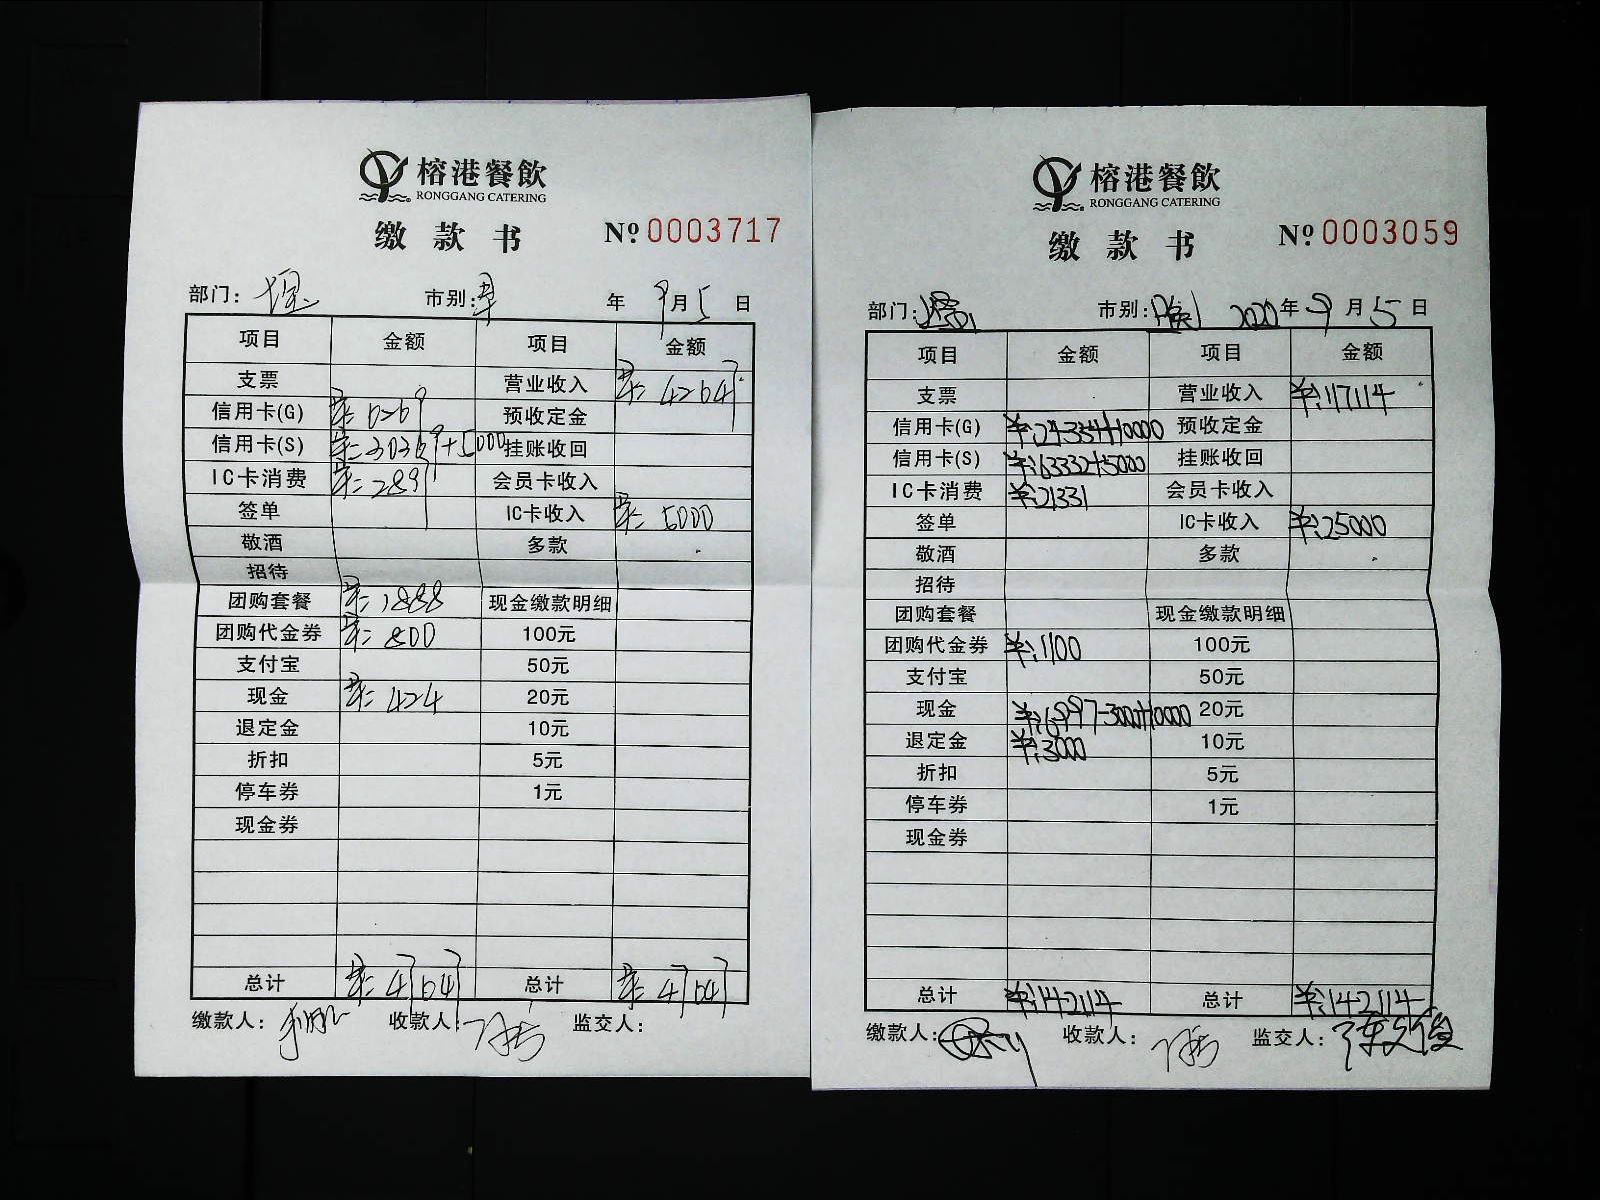 榕港餐飲
RONGGANG CATERING
缴款书
№ 0003717
部门: 市别: 年 9月5日
项目 金额 项目 金额
支票 营业收入
信用卡(G) 预收定金
信用卡(S) 挂账收回
IC卡消费 会员卡收入
签单 IC卡收入 5000
敬酒 多款
招待
团购套餐 1888 现金缴款明细
团购代金券 800 100元
支付宝 50元
现金 424 20元
退定金 10元
折扣 5元
停车券 1元
现金券
总计 总计
缴款人: 收款人: 监交人:
榕港餐飲
RONGGANG CATERING
缴款书
№ 0003059
部门: 市别: 晚 2020年9月5日
项目 金额 项目 金额
支票 营业收入 ¥:117114
信用卡(G) ¥:24354+10000 预收定金
信用卡(S) ¥:63332+5000 挂账收回
IC卡消费 ¥:21331 会员卡收入
签单 IC卡收入 ¥:25000
敬酒 多款
招待
团购套餐 现金缴款明细
团购代金券 ¥:1100 100元
支付宝 50元
现金 ¥:6997-3000+10000 20元
退定金 ¥:3000 10元
折扣 5元
停车券 1元
现金券
总计 ¥:142114 总计 ¥:142114
缴款人: 收款人: 监交人: 陈文俊